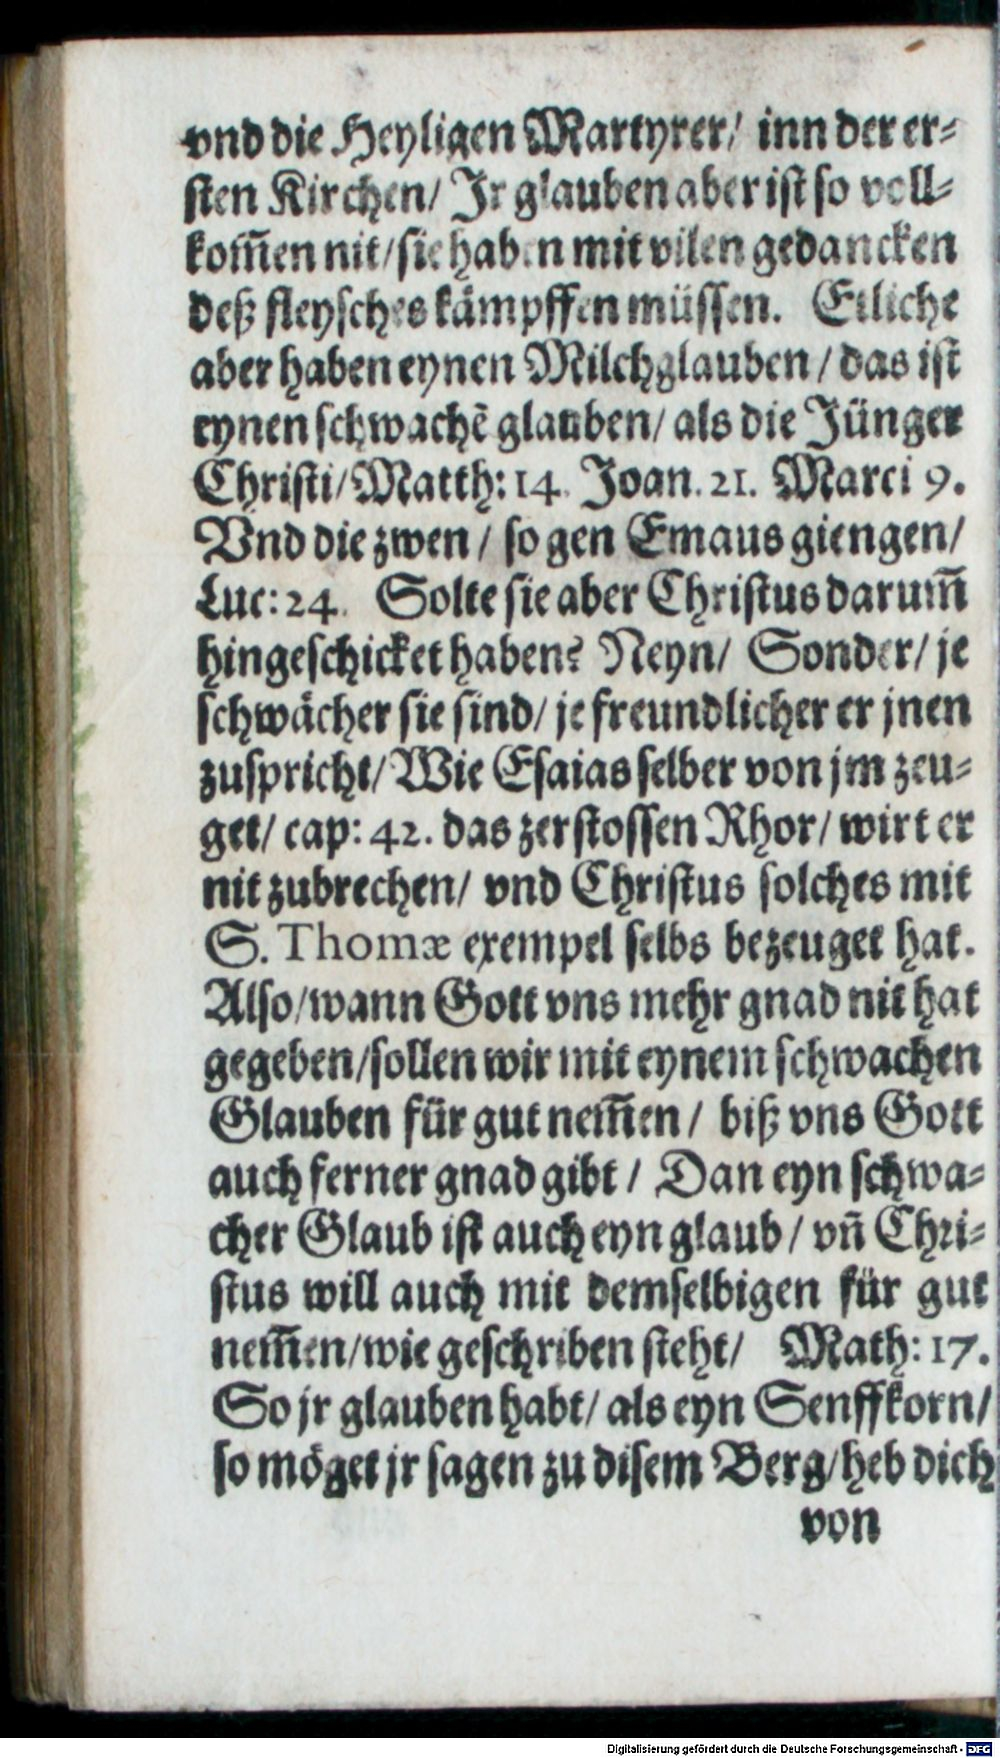 vnd die Heyligen Martyrer/ inn der er⸗
sten Kirchen/ Jr glauben aber ist so voll⸗
kom̃en nit/ sie haben mit vilen gedancken
deß fleysches kämpffen müssen. Etliche
aber haben eynen Milchglauben / das ist
eynen schwachẽ glauben/ als die Jünger
Christi/ Matth: 14. Joan. 21. Marci 9.
Vnd die zwen / so gen Emaus giengen/
Luc: 24. Solte sie aber Christus darum̃
hingeschicket haben? Neyn/ Sonder/ je
schwächer sie sind/ je freundlicher er jnen
zuspricht/ Wie Esaias selber von jm zeu⸗
get/ cap: 42. das zerstossen Rhor/ wirt er
nit zubrechen/ vnd Christus solches mit
S. Thomæ exempel selbs bezeuget hat.
Also/ wann Gott vns mehr gnad nit hat
gegeben/ sollen wir mit eynem schwachen
Glauben für gut nem̃en / biß vns Gott
auch ferner gnad gibt / Dan eyn schwa⸗
cher Glaub ist auch eyn glaub / vñ Chri⸗
stus will auch mit demselbigen für gut
nem̃en/ wie geschriben steht/ Math: 17.
So jr glauben habt/ als eyn Senffkorn/
so möget jr sagen zu disem Berg/ heb dich
von
Digitalisierung gefördert durch die Deutsche Forschungsgemeinschaft - DFG